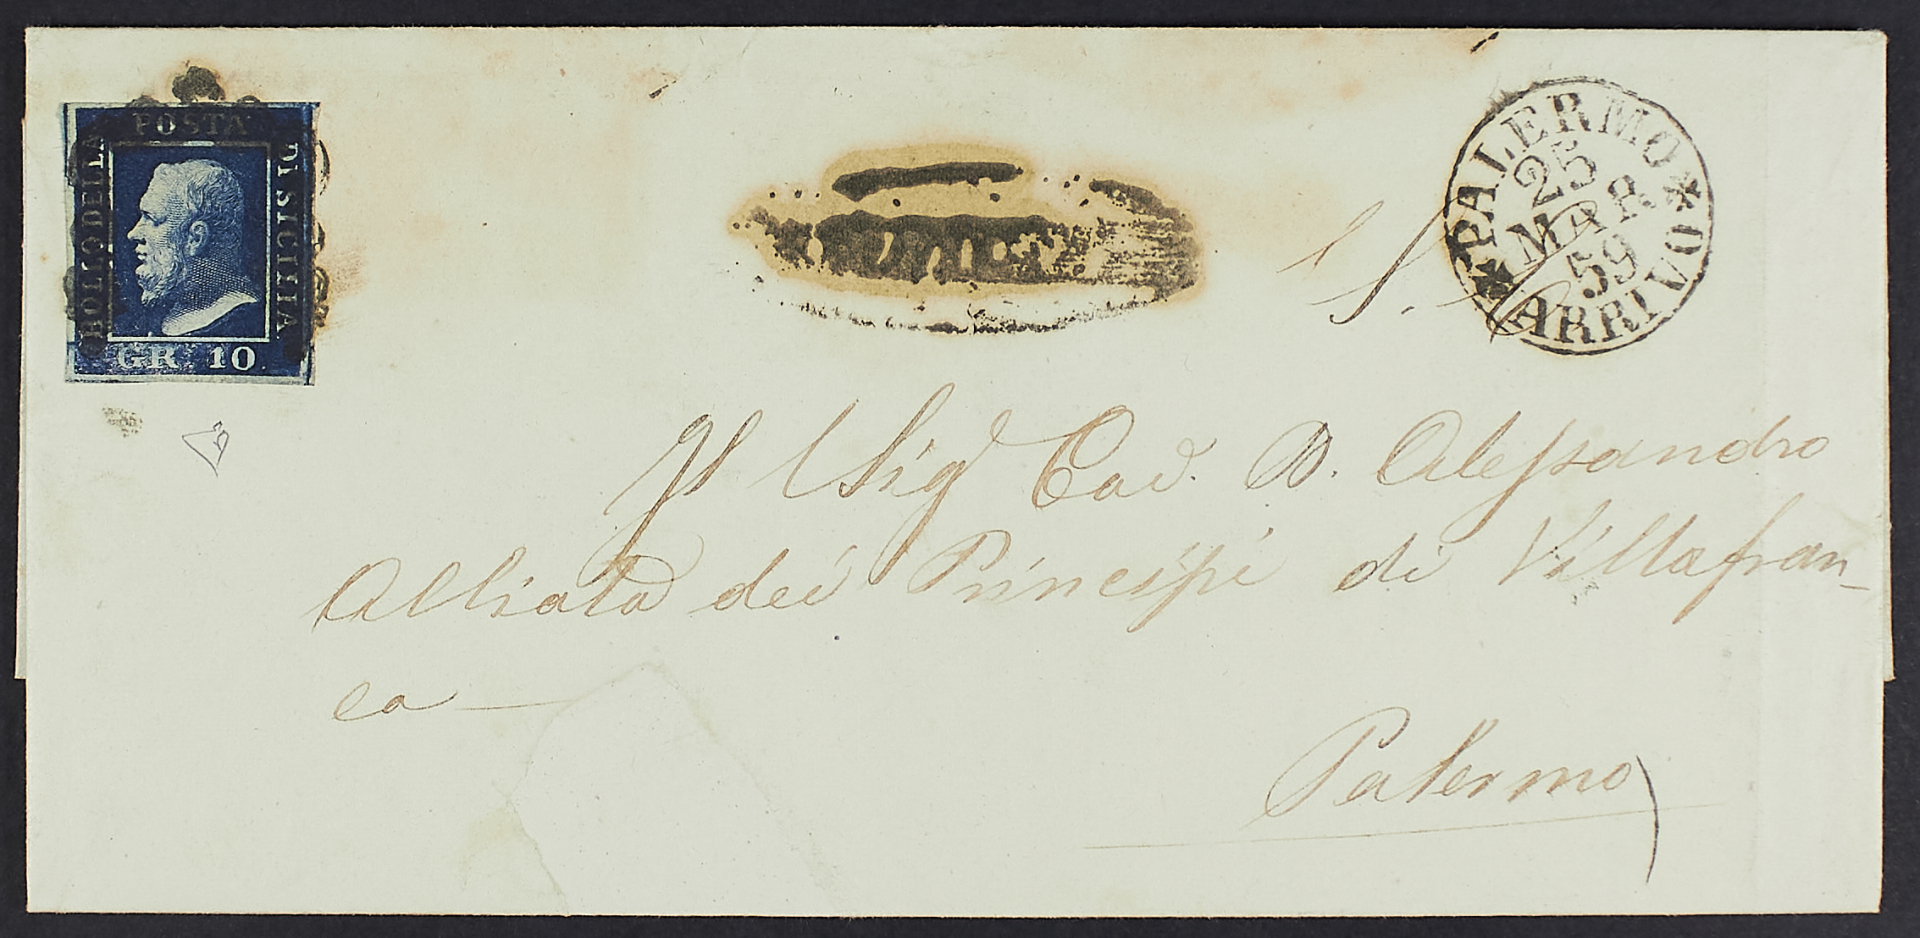 POSTA
BOLLO DELLA
DI SICILIA
GR. 10
PALERMO
25
MAR
59
ARRIVO
S.
Il Sig Cav. D. Alessandro
Alliata dei Principi di Villafran-
ca
Palermo